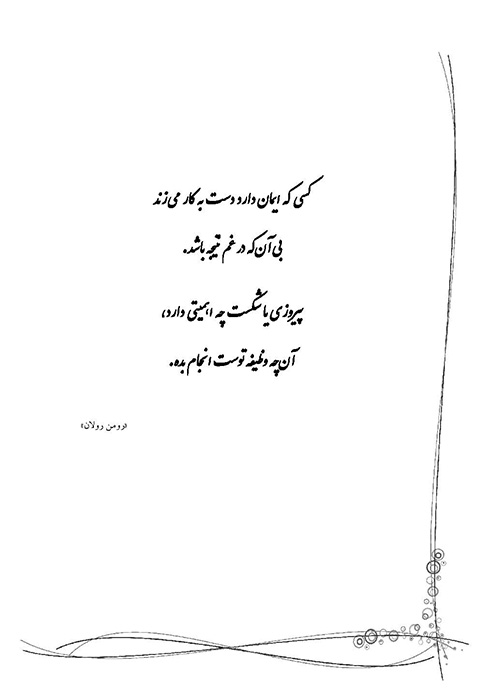 کسی که ایمان دارد دست به کار می‌زند
بی آن‌که در غم نتیجه باشد.
پیروزی یا شکست چه اهمیتی دارد،
آن‌چه وظیفه توست انجام بده.
«رومن رولان»